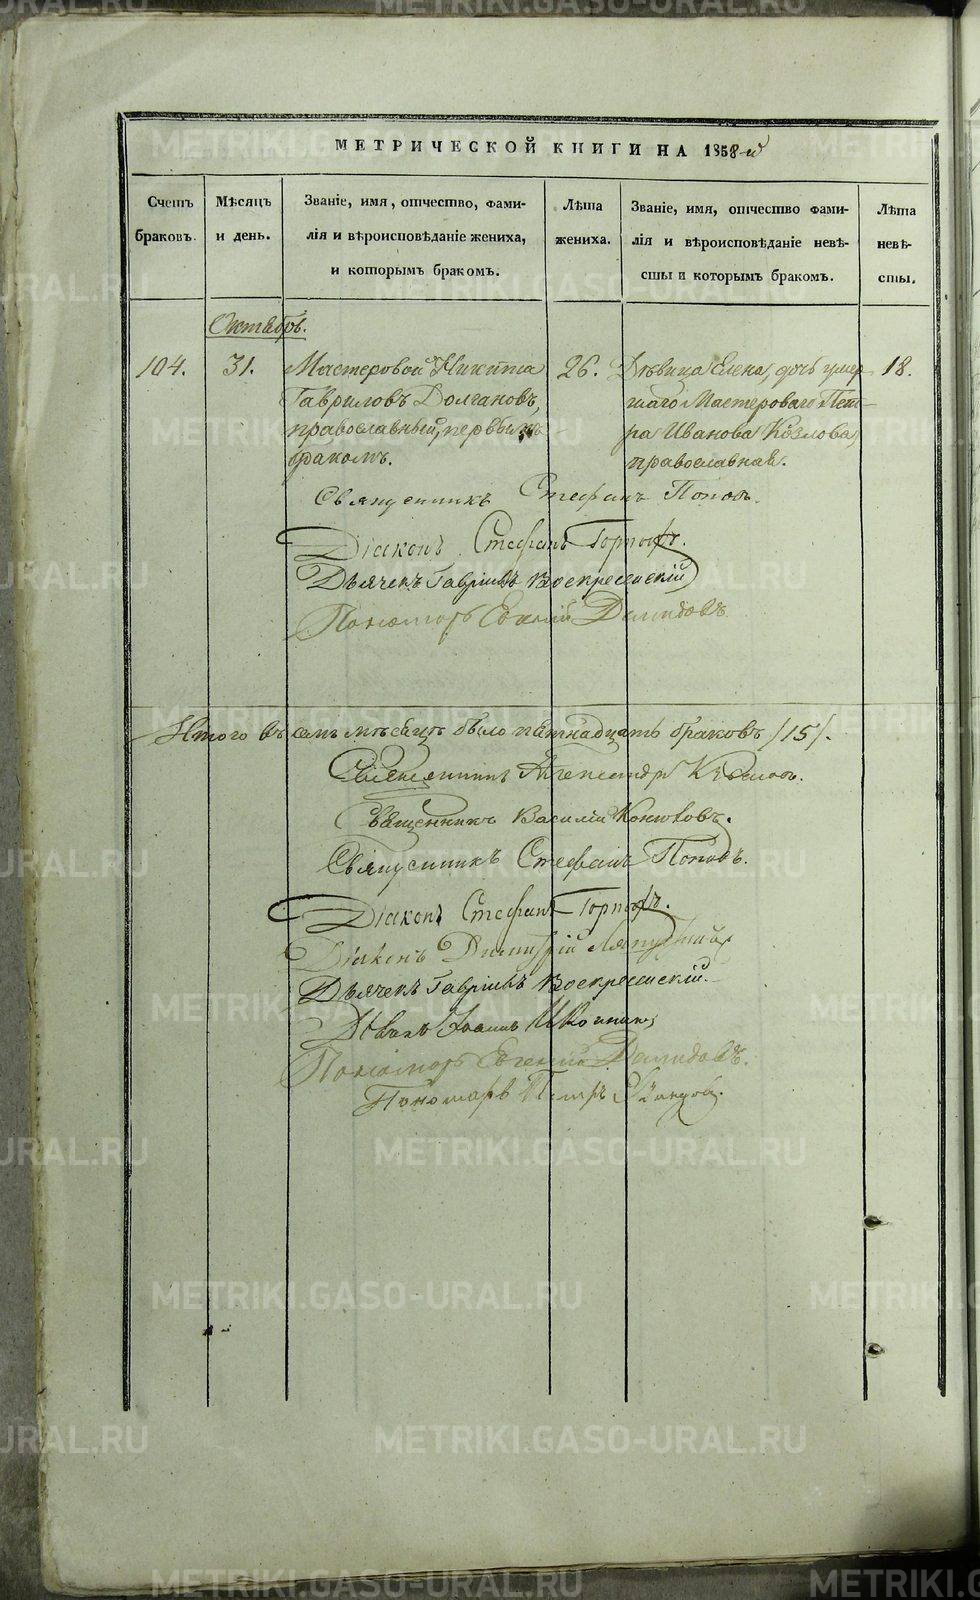 МЕТРИЧЕСКОЙ КНИГИ НА 1858-й
Счетъ браковъ.
Мѣсяцъ и день.
Званіе, имя, отчество, фами-
лія и вѣроисповѣданіе жениха,
и которымъ бракомъ.
Лѣта жениха.
Званіе, имя, отчество фами-
лія и вѣроисповѣданіе невѣ-
сты и которымъ бракомъ.
Лѣта невѣ-
сты.
Октябрь.
104. 31. Мастеровой Никита 26. Дѣвица Елена, дочь умер- 18.
Гавриловъ Долгановъ, шаго Мастероваго Пет-
православный, первымъ ра Иванова Козлова,
бракомъ. православная.
Священникъ Стефанъ Поповъ.
Діаконъ Стефанъ
Дьячекъ Гавріилъ Воскресенскій
Пономарь Евгеній Демидовъ
Итого въ семъ мѣсяцѣ было пятнадцать браковъ /15/.
Священникъ Александръ
Священникъ Василій Конюховъ.
Священникъ Стефанъ Поповъ.
Діаконъ Стефанъ
Діаконъ Димитрій
Дьячекъ Гавріилъ Воскресенскій.
Дьячекъ Іоаннъ
Пономарь Евгеній Демидовъ.
Пономарь Петръ
METRIKI.GASO-URAL.RU